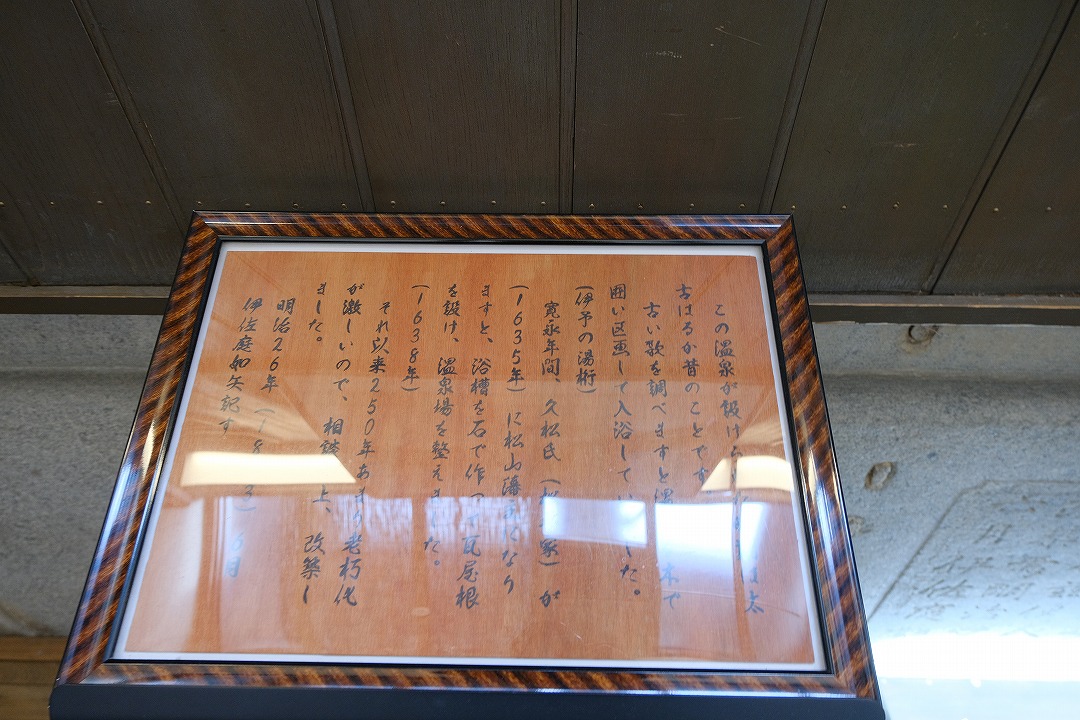 この温泉が設けられましたのは太
古はるか昔のことです。
古い歌を調べますと湯 木で
囲い区画して入浴していました。
(伊予の湯桁)
寛永年間、久松氏(松 家)が
(1635年)に松山藩主になり
ますと、浴槽を石で作って瓦屋根
を設け、温泉場を整えました。
(1638年)
それ以来250年あまり老朽化
が激しいので、相談 上、改築し
ました。
明治26年(18 3)6月
伊佐庭如矢記す